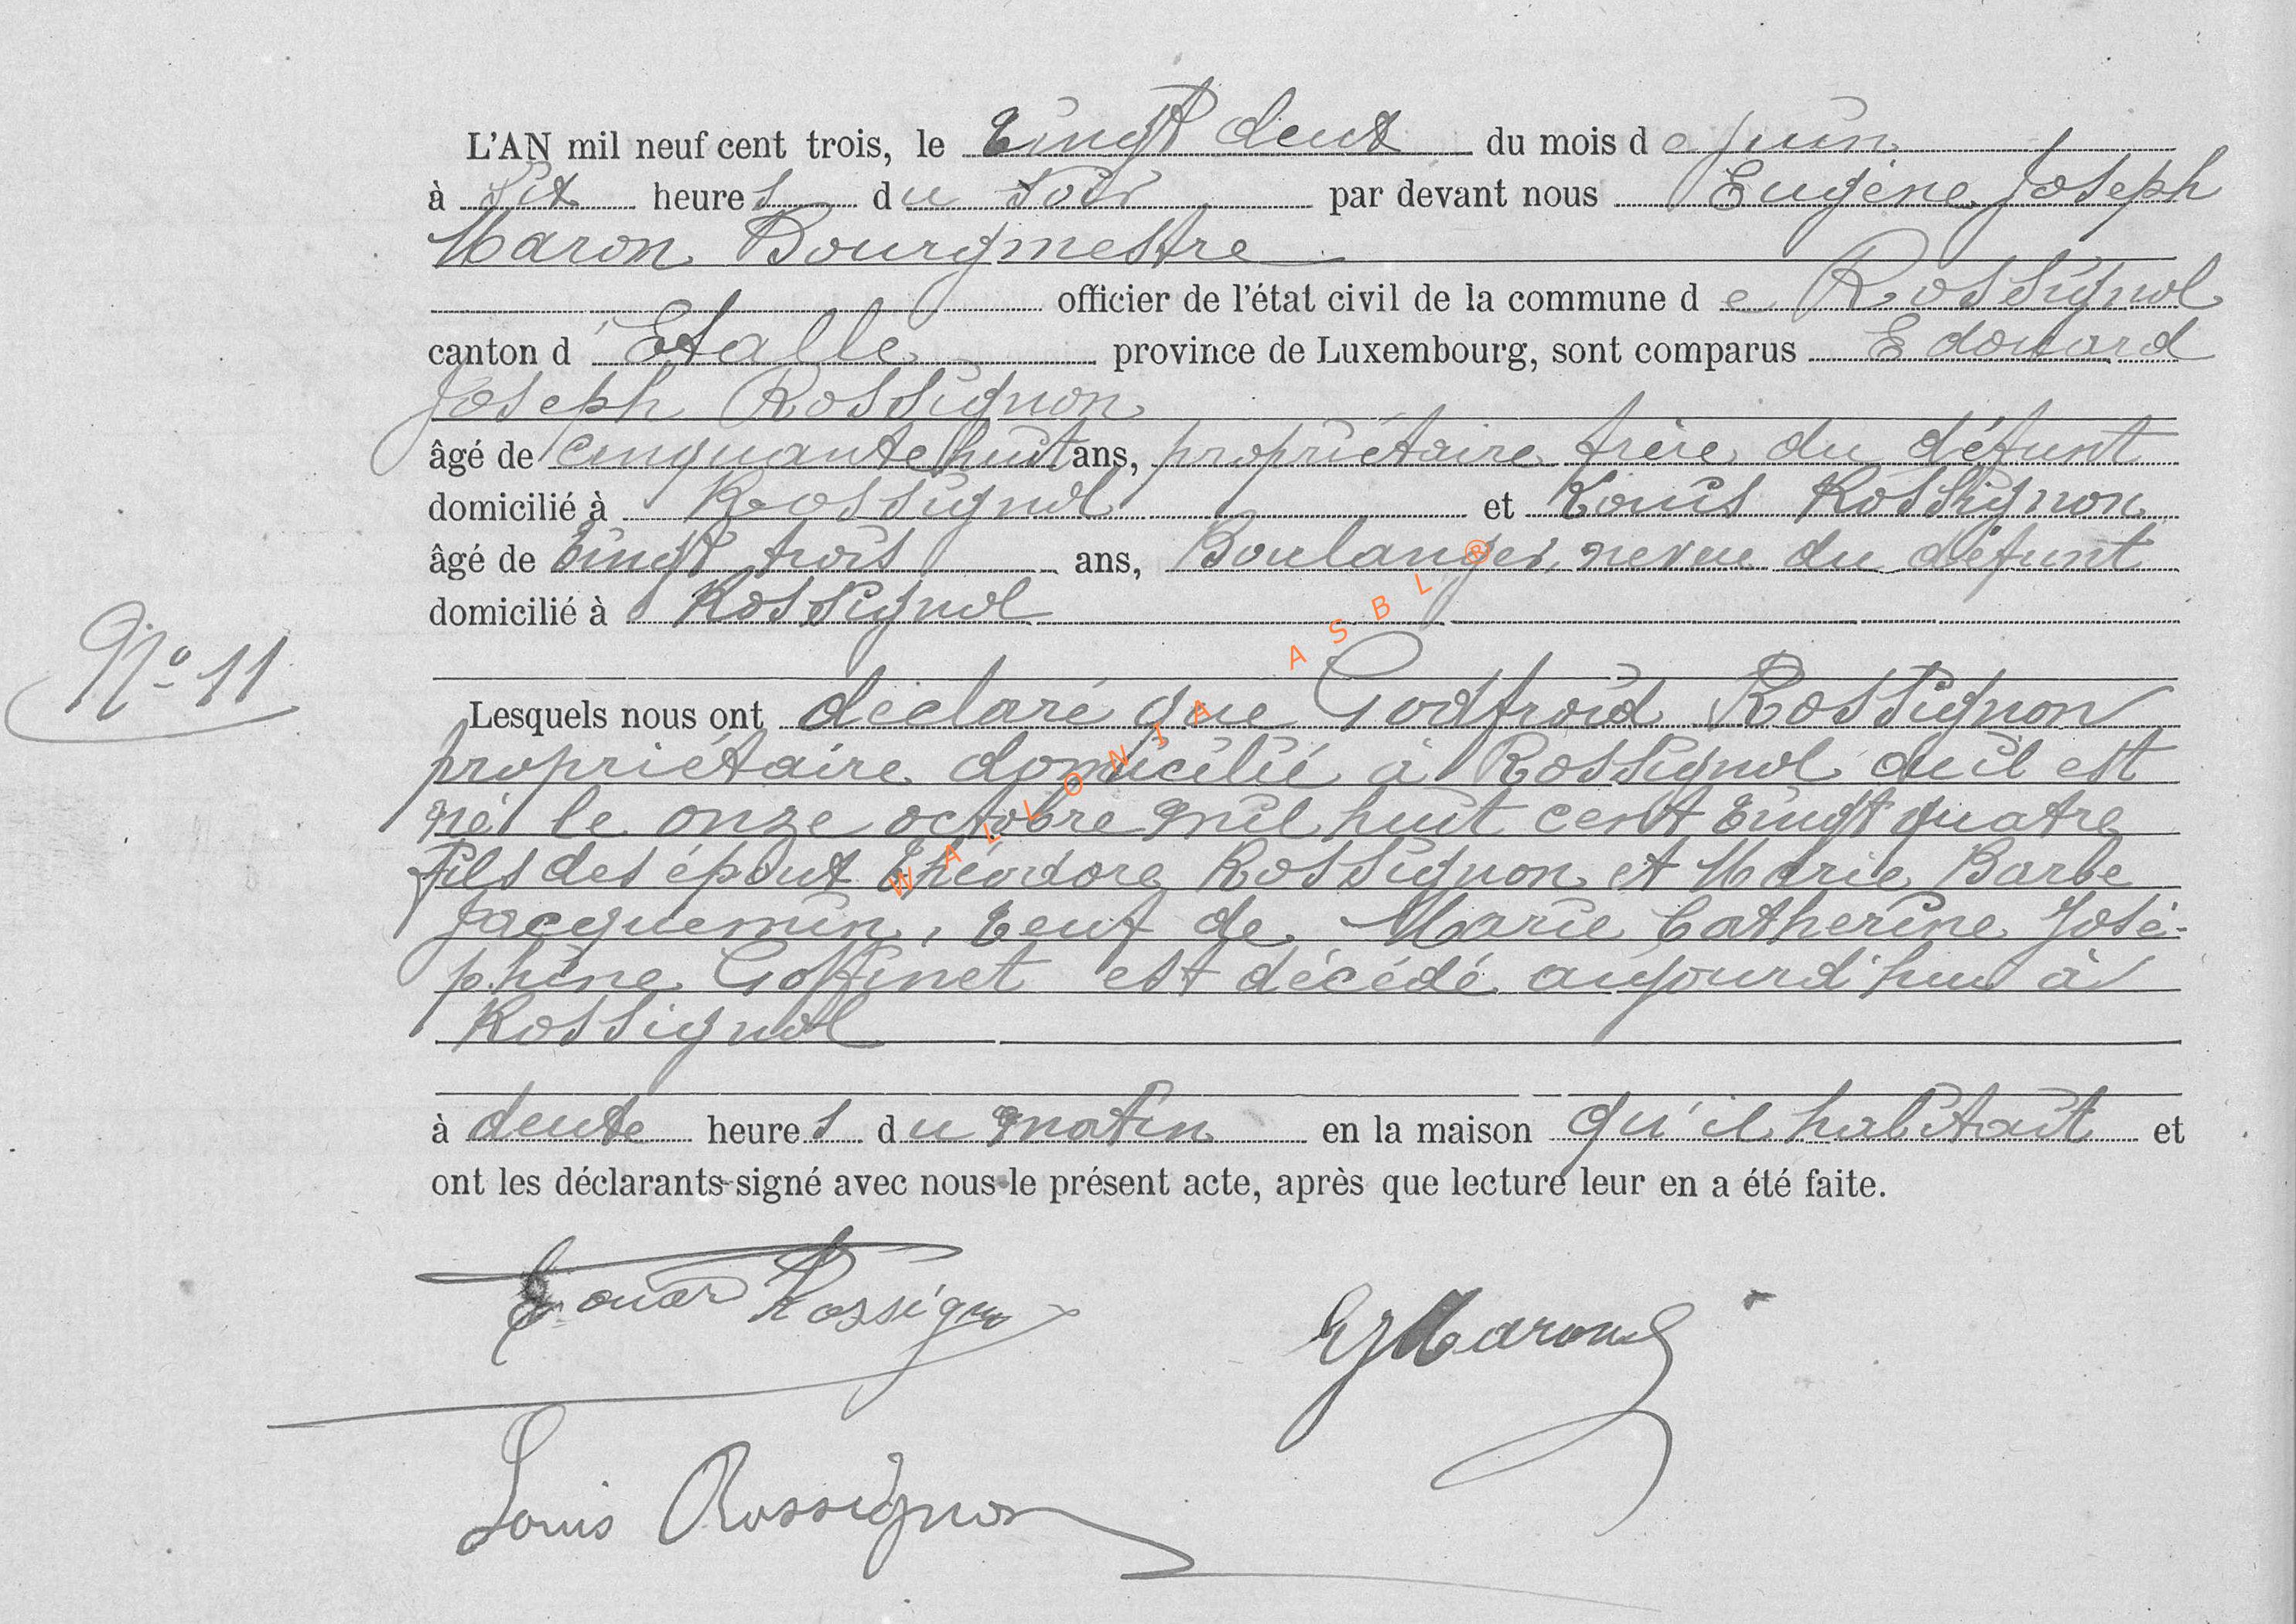 L'AN mil neuf cent trois, le vingt deux du mois de juin
à six heures du soir par devant nous Eugène Joseph
Maron Bourgmestre
officier de l'état civil de la commune de Rossignol
canton d'Etalle province de Luxembourg, sont comparus Edouard
Joseph Rossignon
âgé de cinquante huit ans, propriétaire frère du défunt
domicilié à Rossignol et Louis Rossignon
âgé de vingt trois ans, Boulanger, neveu du défunt
domicilié à Rossignol
N° 11
Lesquels nous ont déclaré que Godfroid Rossignon
propriétaire domicilié à Rossignol où il est
né le onze octobre mil huit cent vingt quatre
fils des époux Théodore Rossignon et Marie Barbe
Jacquemin, veuf de Marie Catherine José-
phine Goffinet est décédé aujourd'hui à
Rossignol
à deux heures du matin en la maison qu'il habitait et
ont les déclarants signé avec nous le présent acte, après que lecture leur en a été faite.
Edouard Rossignon
EJMaron
Louis Rossignon
WALLONIA ASBL ®